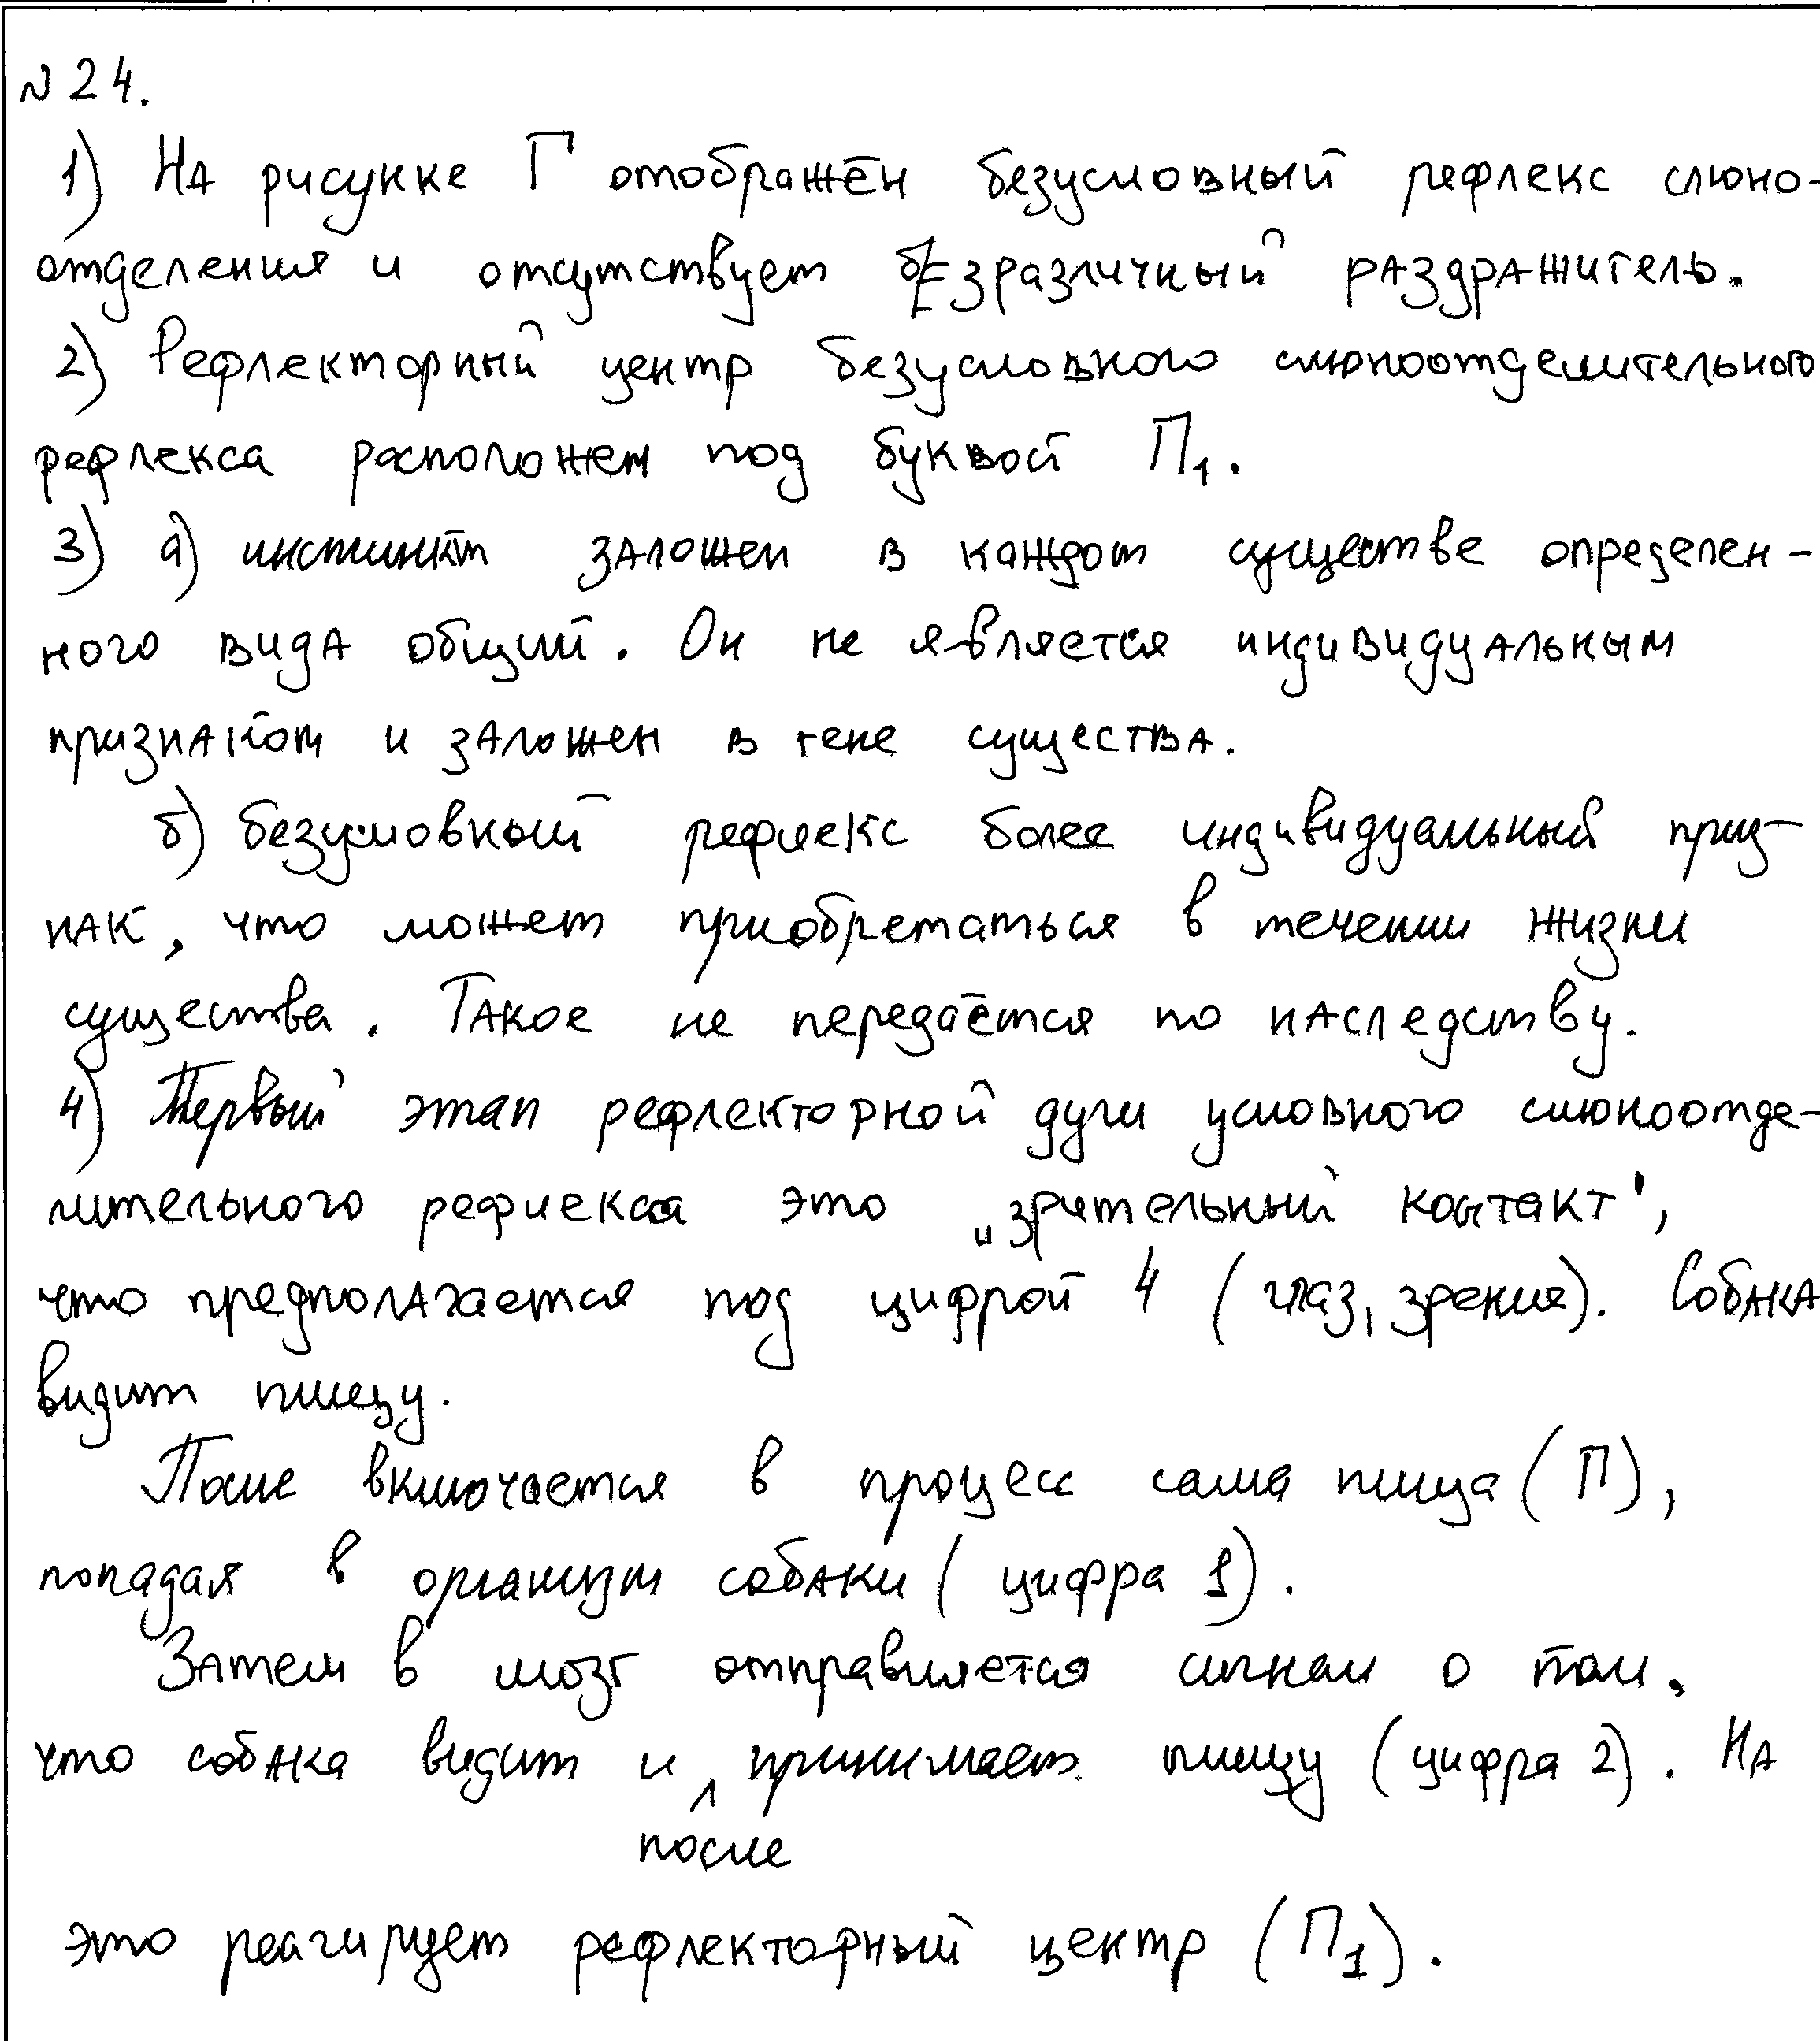 № 24.
1) На рисунке Г отображён безусловный рефлекс слюно-
отделения и отсутствует безразличный раздражитель.
2) Рефлекторный центр безусловного слюноотделительного
рефлекса расположен под буквой П1.
3) а) инстинкт заложен в каждом существе определен-
ного вида общий. Он не является индивидуальным
признаком и заложен в гене существа.
б) безусловный рефлекс более индивидуальный приз-
нак, что может приобретаться в течении жизни
существа. Такое не передаётся по наследству.
4) Первый этап рефлекторной дуги условного слюноотде-
лительного рефлекса это „зрительный контакт",
что предполагается под цифрой 4 (глаз, зрения). Собака
видит пищу.
После включается в процесс сама пища (П),
попадая в организм собаки (цифра 1).
Затем в мозг отправляется сигнал о том,
что собака видит и после принимает пищу (цифра 2). На
это реагирует рефлекторный центр (П1).